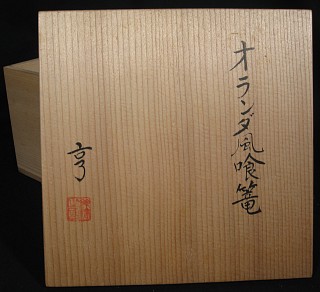 オランダ風喰篭
亨